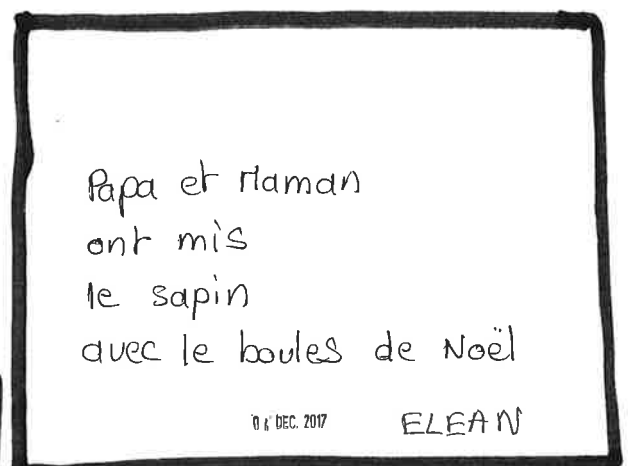 Papa et Maman
ont mis
le sapin
avec le boules de Noël
DEC. 2017 ELEAN